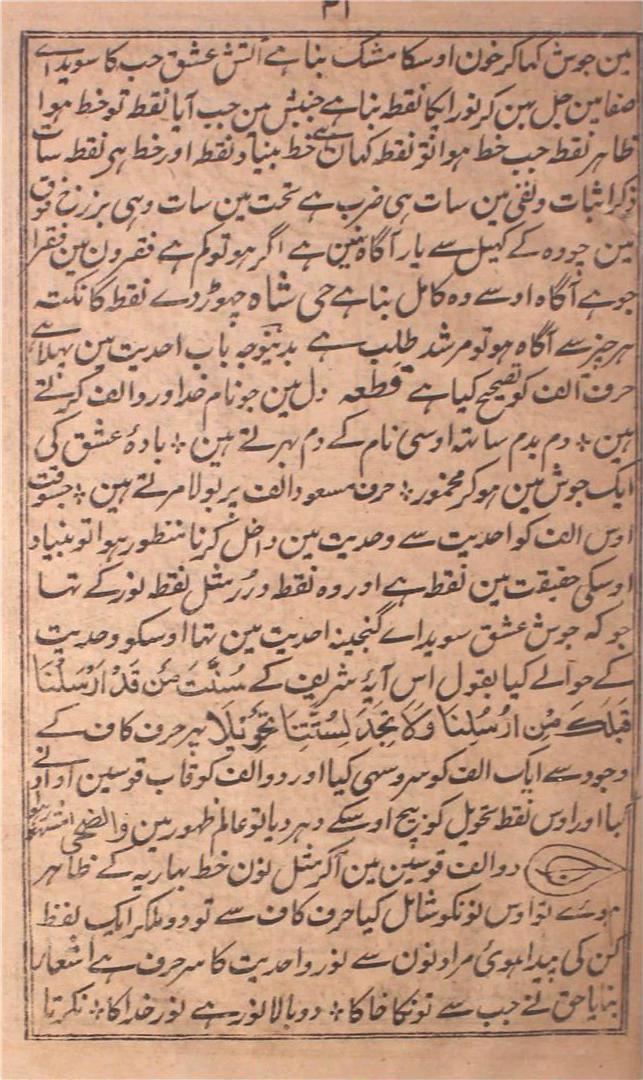 ۳۱
مین جوش کہا کر خون اوسکا مشک بنا ہے آتش عشق حب کا سویداے
صفا مین جل بہن کر نور ایکا نقطہ بنا ہے جنبش مین جب آیا نقطہ تو خط ہوا
ظاہر نقطہ جب خط ہوا تو نقطہ کہان ہے خط بنیاد نقطہ اور خط ہی نقطہ سات
ذکر اثبات و نفی مین سات ہی ضرب ہے تحت مین سات وہی برزخ فوق
مین چودہ کے کہیل سے یار آگاہ نہین ہے اگر ہو تو کم ہے فقرون مین فقرا
جو ہے آگاہ اوسے وہ کامل بنا ہے حی شاہ چہوڑ دے نقطہ کا نکتہ
ہر چیز سے آگاہ ہو تو مرشد طلب ہے بدینوجہ باب احدیت مین پہلا ہے
حرف الف کو تصحیح کیا ہے قطعہ دل مین جو نام خدا ور و الف کرتے
ہین ٭ دم بدم ساتہ اوسی نام کے دم بہرتے ہین ٭ بادۂ عشق کی
ایک جوش مین ہو کر مخمور ٭ حرف مسعود الف پر بولا مرتے ہین ٭ جسوقت
اوس الف کو احدیت سے وحدیت مین داخل کرنا منظور ہوا تو بنیاد
اوسکی حقیقت مین نقطہ ہے اور وہ نقطہ ور مثل نقطہ نور کے تہا
جو کہ جوش عشق سویداے گنجینہ احدیت مین تہا اوسکو وحدیت
کے حوالے کیا بقول اس آیۂ شریف کے سُنَّتَ مَن قَدْ اَرْسَلْنَا
قَبْلَکَ مِن اَرْسُلِنَا وَلَا تَجِدُ لِسُنَّتِنَا تَحْوِیْلَا پہر حرف کاف کے
وجود سے ایک الف کو سر و سہی کیا اور دو الف کو قاب قوسین او ادنے
کیا اور اوس نقط تحویل کو بیچ اوسکے دہر دیا تو عالم ظہور مین والضحی
دو الف قوسین مین آکر مثل نون خط بہاریہ کے ظاہر
ہوئے تو اوس نونکو شامل کیا حرف کاف سے تو دو ملکر ایک لفظ
کن کی پیدا ہوئی مراد نون سے نور واحدیت کا سر حرف ہے اشعار
بنایا حق نے جب سے نونکا خاکا ٭ دوبالا نور ہے نور خدا کا ٭ نکرتا